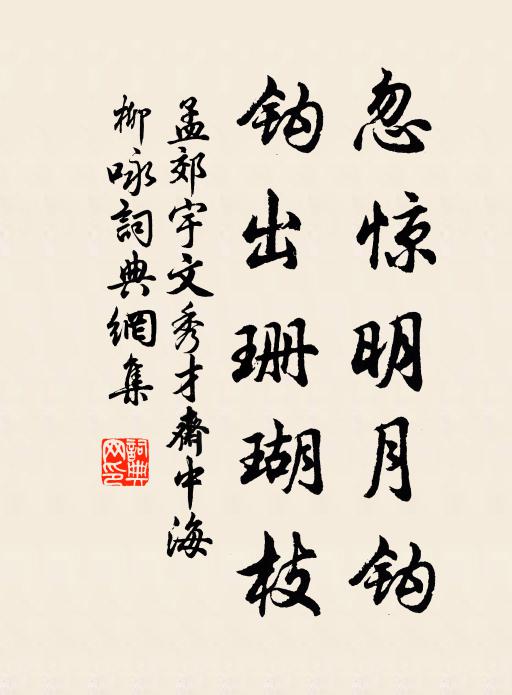 忽惊明月钩
钩出珊瑚枝
孟郊宇文秀才斋中海
柳咏詞典網集
詞典网印